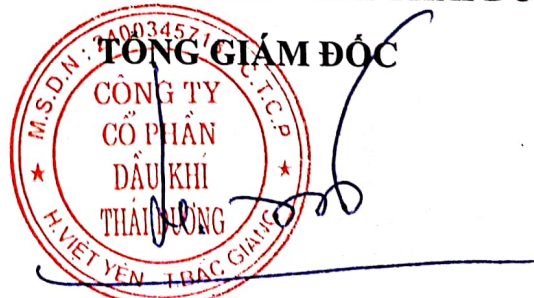 TỔNG GIÁM ĐỐC
M.S.D.N: 2400345718 C.T.C.P
CÔNG TY
CỔ PHẦN
DẦU KHÍ
THÁI DƯƠNG
H.VIỆT YÊN - T.BẮC GIANG